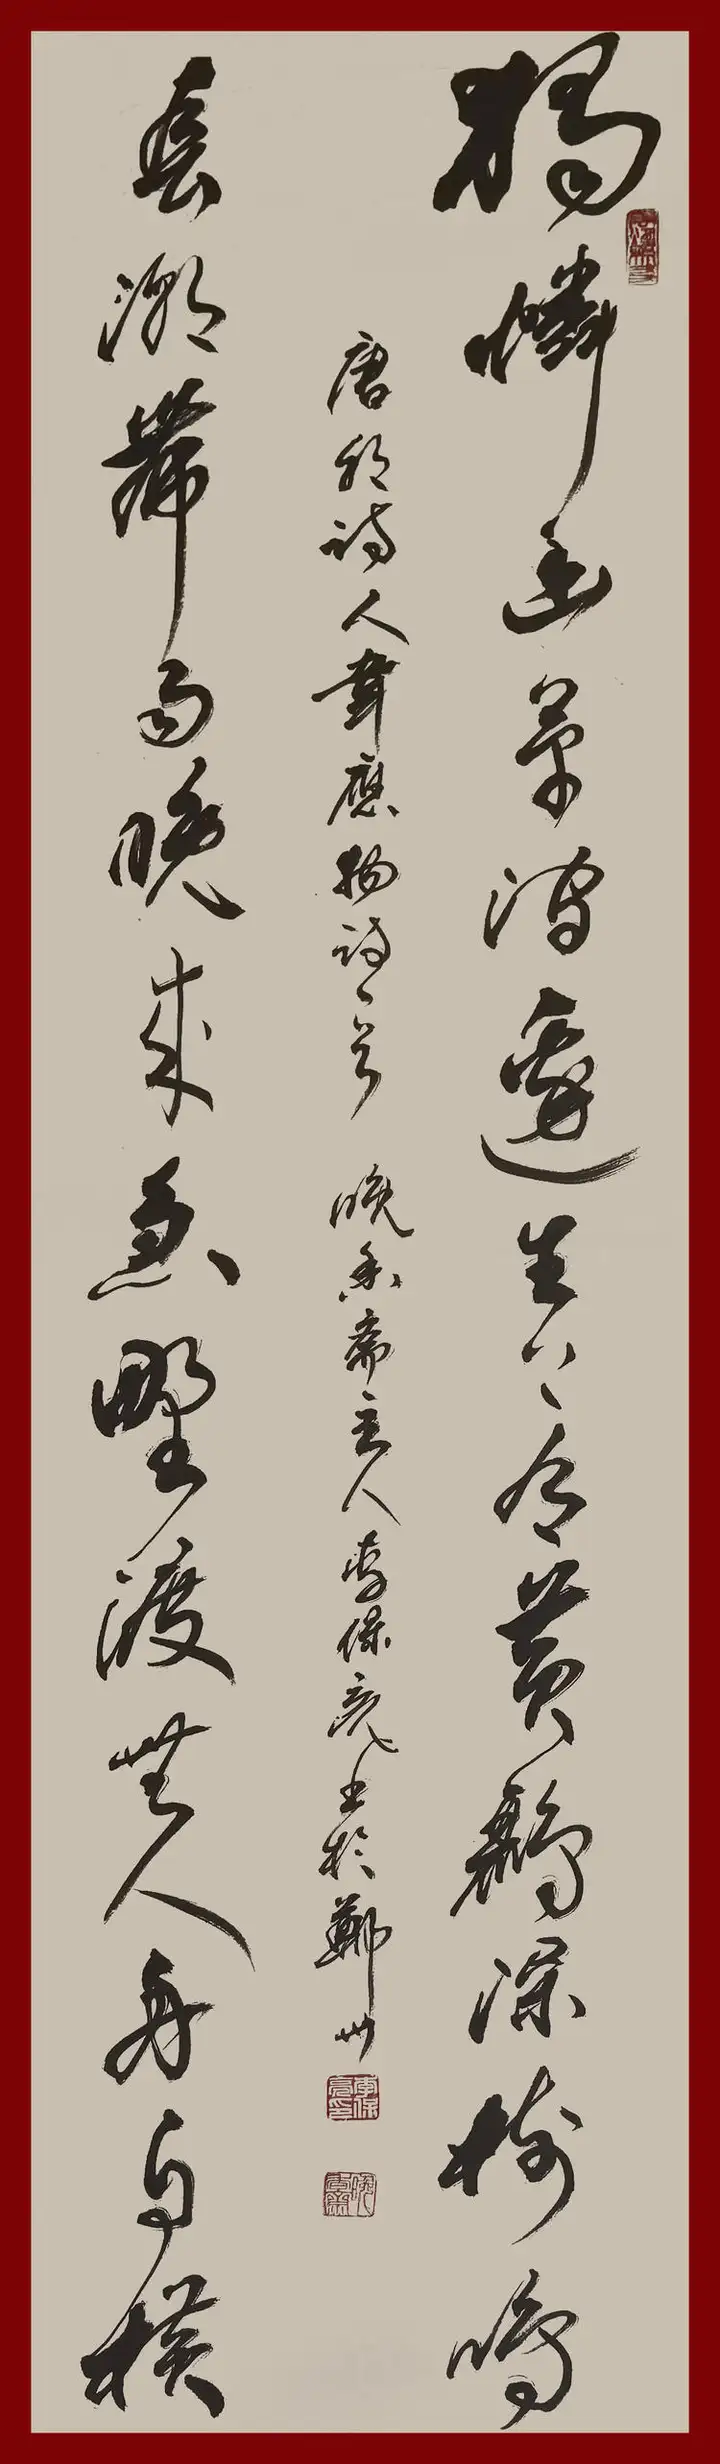 獨憐幽草澗邊生上有黃鸝深樹鳴
春潮帶雨晚來急野渡無人舟自橫
唐朝詩人韋應物詩一首 晚香齋主人李保亮書於鄭州
李保亮印